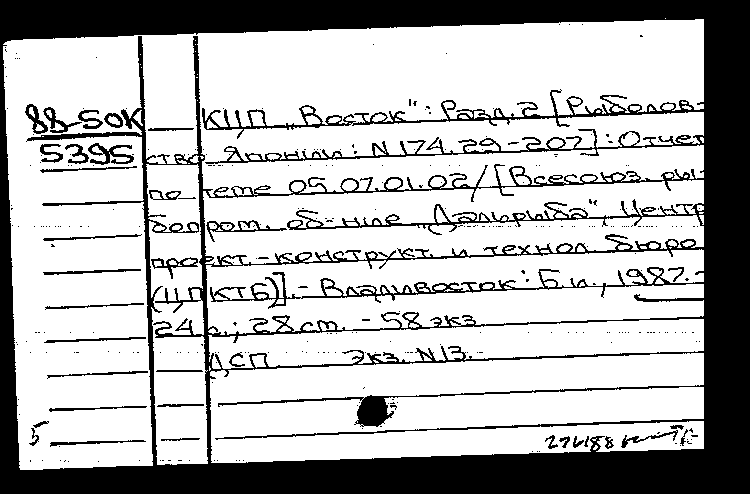 88-50К КЦП „Восток“: Разд. 2 [Рыболов-
5395 ство Японии: N 174.29-207]: Отчет
по теме 05.07.01.02/[Всесоюз. ры-
бопром. об-ние „Дальрыба“, Центр
проект.-конструкт. и технол бюро
(ЦПКТБ)].- Владивосток: Б.и., 1987.-
24 с.; 28 см. - 58 экз
ДСП Экз. N13.-
5